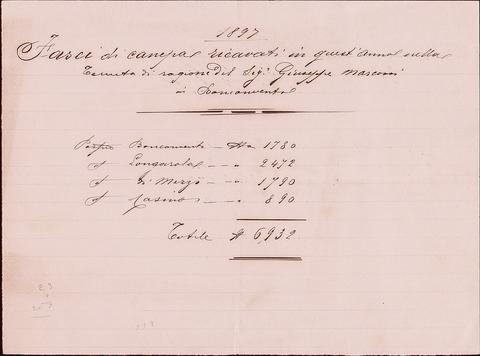 1897
Fasci di canepa ricavati in quest'anno nella
Tenuta di ragioni del Sig.r Giuseppe Marconi
in Boncon­vento
Boncon­vento — N° 1780
" — " 2472
" di Mezzo — " 1790
" Casino — " 890
Totale N 6,932
23